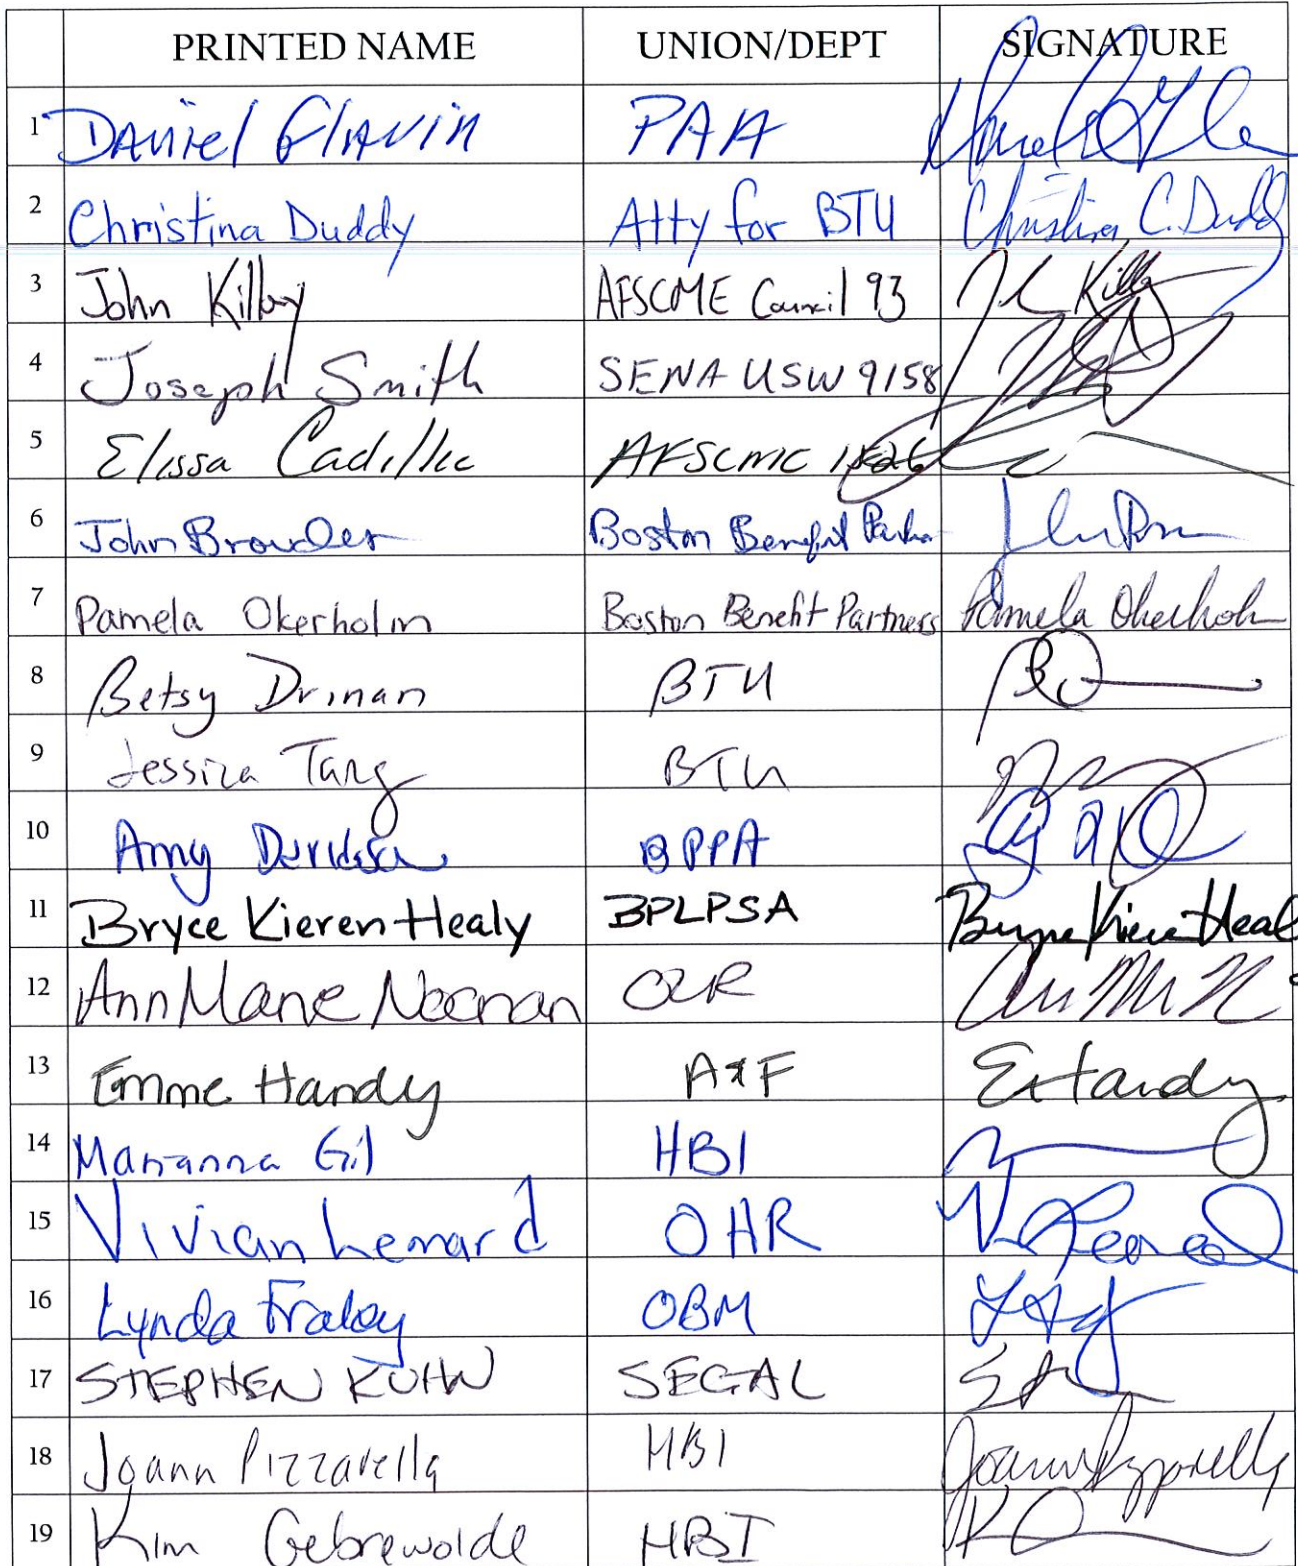 PRINTED NAME UNION/DEPT SIGNATURE
1 Daniel Glavin PAA
2 Christina Duddy Atty for BTU Christina C. Duddy
3 John Kilby AFSCME Council 93
4 Joseph Smith SENA USW 9158
5 Elissa Cadillic AFSCME 1526
6 John Browder Boston Benefit
7 Pamela Okerholm Boston Benefit Partners Pamela Okerholm
8 Betsy Drinan BTU
9 Jessica Tang BTU
10 Amy BPPA
11 Bryce Kieren Healy BPLPSA
12 Ann Marie Noonan OLR
13 Emme Handy A&F EHandy
14 Marianna Gil HBI
15 Vivian Leonard OHR
16 Lynda Fraley OBM
17 STEPHEN KUHN SEGAL
18 Joann Pizzarella HBI
19 Kim Gebrewolde HBI